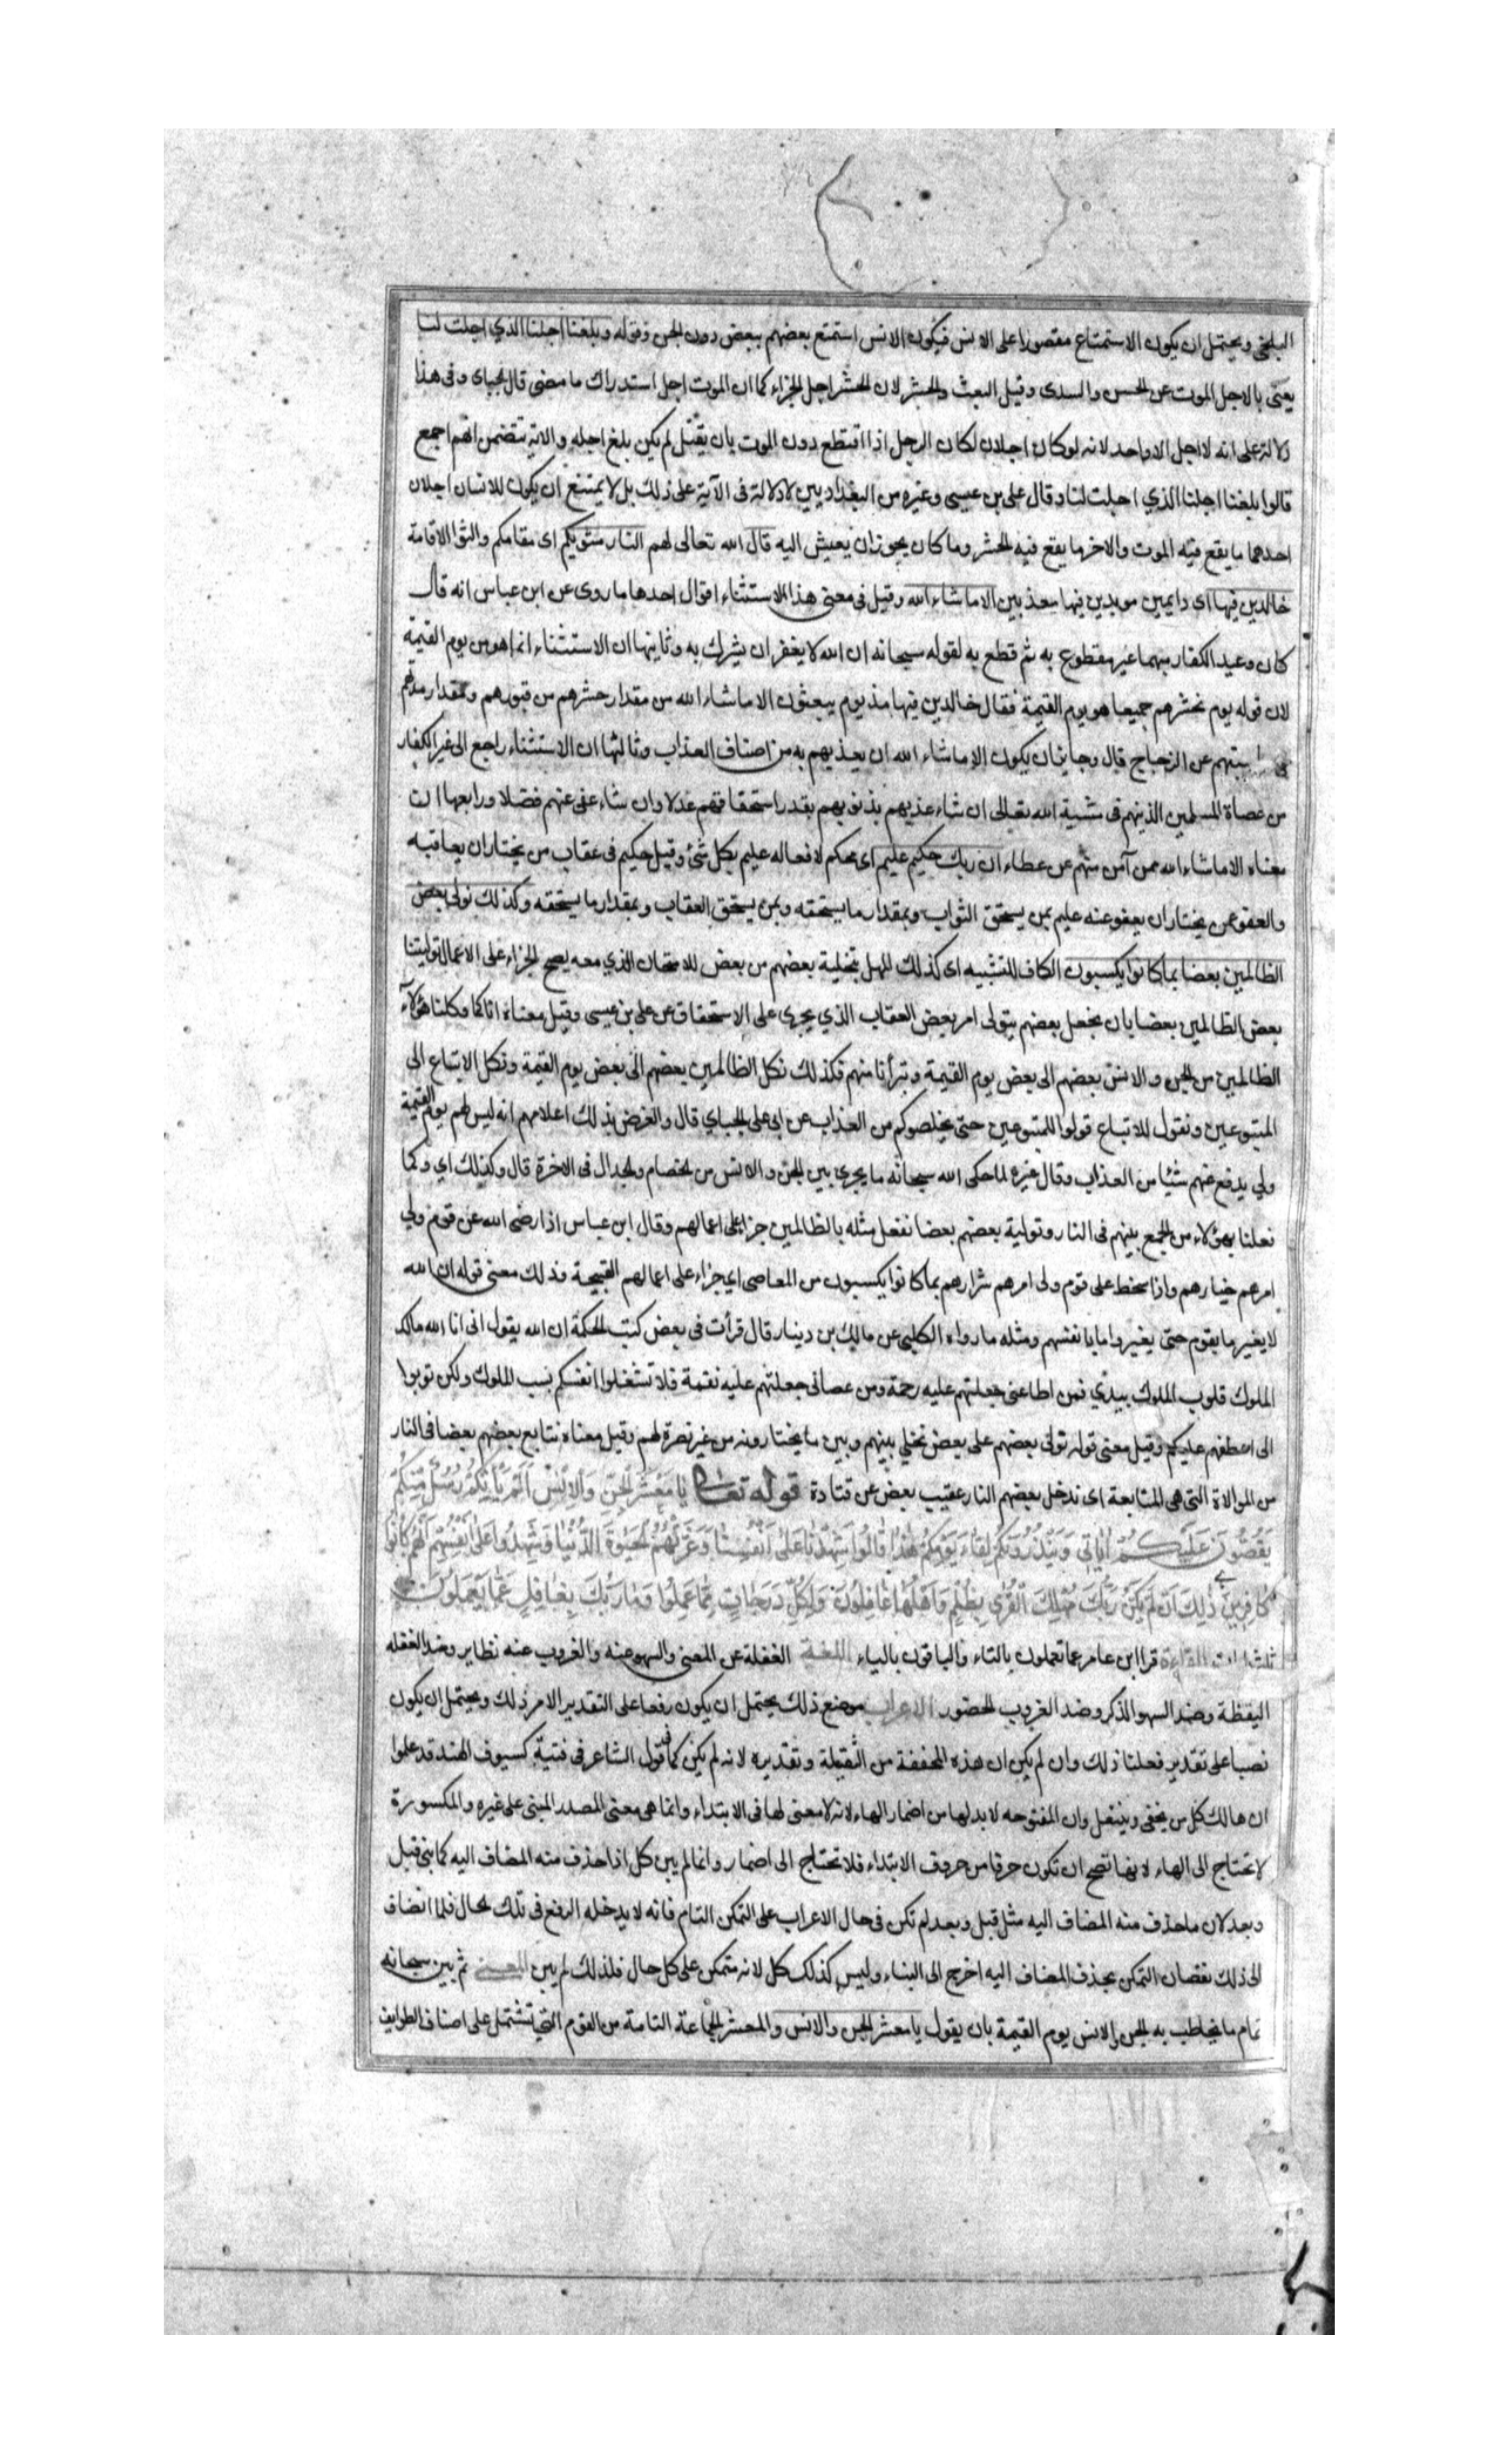 البلخي ويحتمل ان يكون الاستمتاع مقصورا على الانس فيكون الانس استمتع بعضهم ببعض دون الجن وقوله وبلغنا اجلنا الذي اجلت لنا
يعنى بالاجل الموت عن الحسن والسدى وقيل البعث والحشر لان الحشر اجل الجزاء كما ان الموت اجل استدراك ما مضى قال الجباى وفى هذا
دلالة على انه لا اجل الا واحد لانه لو كان اجلان لكان الرجل اذا اقتطع دون الموت بان يقتل لم يكن بلغ اجله والاية تتضمن انهم اجمع
قالوا بلغنا اجلنا الذي اجلت لنا وقال على بن عيسى وغيره من البغداديين لا دلالة فى الآية على ذلك بل لا يمتنع ان يكون للانسان اجلان
احدهما ما يقع فيه الموت والاخر ما يقع فيه الحشر وما كان يجوز ان يعيش اليه قال الله تعالى لهم النار مثويكم اى مقامكم والثوا الاقامة
خالدين فيها اى دايمين مويدين فيها معذبين الا ما شاء الله وقيل فى معنى هذا الاستثناء اقوال احدها ما روى عن ابن عباس انه قال
كان وعيد الكفار مبهما غير مقطوع به ثم قطع به لقوله سبحانه ان الله لا يغفر ان يشرك به وثانيها ان الاستثناء انما هو من يوم القيمة
لان قوله يوم نحشرهم جميعا هو يوم القيمة فقال خالدين فيها مذ يوم يبعثون الا ما شاء الله من مقدار حشرهم من قبورهم ومقدار مدتهم
فى محاسبتهم عن الزجاج قال وجايز ان يكون الا ما شاء الله ان يعذبهم به من اصناف العذاب وثالثها ان الاستثناء راجع الى غير الكفار
من عصاة المسلمين الذين هم فى مشية الله تعالى ان شاء عذبهم بذنوبهم بقدر استحقاقهم عدلا وان شاء عفى عنهم فضلا ورابعها ان
معناه الا ما شاء الله ممن آمن منهم عن عطاء ان ربك حكيم عليم اى محكم لافعاله عليم بكل شئ وقيل حكيم فى عقاب من يختار ان يعاقبه
والعفو عمن يختار ان يعفو عنه عليم بمن يستحق الثواب وبمقدار ما يستحقه وبمن يستحق العقاب وبمقدار ما يستحقه وكذلك نولى بعض
الظالمين بعضا بما كانوا يكسبون الكاف للتشبيه اى كذلك المهل بتخلية بعضهم من بعض للامتحان الذي معه يصح الجزاء على الاعمال توليتنا
بعض الظالمين بعضا بان نجعل بعضهم يتولى امر بعض العقاب الذي يجرى على الاستحقاق عن على بن عيسى وقيل معناه انا كما وكلنا هؤلاء
الظالمين من الجن والانس بعضهم الى بعض يوم القيمة وتبرأنا منهم فكذلك نكل الظالمين بعضهم الى بعض يوم القيمة ونكل الاتباع الى
المتبوعين ونقول للاتباع قولوا للمتبوعين حتى يخلصوكم من العذاب عن ابى على الجباي قال والغرض بذلك اعلامهم انه ليس لهم يوم القيمة
ولي يدفع عنهم شيئا من العذاب وقال غيره لما حكى الله سبحانه ما يجرى بين الجن والانس من الخصام والجدال فى الاخرة قال وكذلك اي وكما
فعلنا بهؤلاء من الجمع بينهم فى النار وتولية بعضهم بعضا نفعل مثله بالظالمين جزا على اعمالهم وقال ابن عباس اذا رضى الله عن قوم ولي
امرهم خيارهم واذا سخط على قوم ولى امرهم شرارهم بما كانوا يكسبون من المعاصى اي جزاء على اعمالهم القبيحة وذلك معنى قوله ان الله
لا يغير ما بقوم حتى يغيروا ما بانفسهم ومثله ما رواه الكلبى عن مالك بن دينار قال قرأت فى بعض كتب الحكمة ان الله يقول انى انا الله مالك
الملوك قلوب الملوك بيدي فمن اطاعنى جعلتهم عليه رحمة ومن عصانى جعلتهم عليه نقمة فلا تشغلوا انفسكم بسب الملوك ولكن توبوا
الى اعطفهم عليكم وقيل معنى قوله نولى بعضهم على بعض نخلي بينهم وبين ما يختارونه من غير نصرة لهم وقيل معناه نتابع بعضهم بعضا فى النار
من الموالاة التى هى المتابعة اى ندخل بعضهم النار عقيب بعض عن قتادة قوله تعالى يَا مَعْشَرَ الْجِنِّ وَالْاِنْسِ اَلَمْ يَاْتِكُمْ رُسُلٌ مِنْكُمْ
يَقُصُّونَ عَلَيْكُمْ اٰيَاتِى وَيُنْذِرُونَكُمْ لِقَاءَ يَوْمِكُمْ هٰذَا قَالُوا شَهِدْنَا عَلٰى اَنْفُسِنَا وَغَرَّتْهُمُ الْحَيٰوةُ الدُّنْيَا وَشَهِدُوا عَلٰى اَنْفُسِهِمْ اَنَّهُمْ كَانُوا
كَافِرِينَ ذٰلِكَ اَنْ لَمْ يَكُنْ رَبُّكَ مُهْلِكَ الْقُرٰى بِظُلْمٍ وَاَهْلُهَا غَافِلُونَ وَلِكُلٍّ دَرَجَاتٌ مِمَّا عَمِلُوا وَمَا رَبُّكَ بِغَافِلٍ عَمَّا يَعْمَلُونَ
ثلث ايات القراءة قرا ابن عامر عما تعملون بالتاء والباقون بالياء اللغة الغفلة عن المعنى والسهو عنه والغروب عنه نظاير وضد الغفله
اليقظة وضد السهو الذكر وضد الغروب الحضور الاعراب موضع ذلك يحتمل ان يكون رفعا على التقدير الامر ذلك ويحتمل ان يكون
نصبا على تقدير فعلنا ذلك وان لم يكن ان هذه المخففة من الثقيلة وتقديره لانه لم يكن كما فى قول الشاعر فى فتية كسيوف الهند قد علموا
ان هالك كل من يخفى وينتعل وان المفتوحه لا بد لها من اضمار الهاء لانه لا معنى لها فى الابتداء وانما هى معنى المصدر المبنى على غيره والمكسورة
لا تحتاج الى الهاء لانها تصح ان تكون حرفا من حروف الابتداء فلا تحتاج الى اضمار وانما لم يبن كل اذا حذف منه المضاف اليه كما بنى قبل
وبعد لان ما حذف منه المضاف اليه مثل قبل وبعد لم تكن فى حال الاعراب على التمكن التام فانه لا يدخله الرفع فى تلك الحال فلما انضاف
الى ذلك نقصان التمكن بحذف المضاف اليه اخرج الى البناء وليس كذلك كل لانه متمكن على كل حال فلذلك لم يبن المعنى ثم بين سبحانه
تمام ما يخاطب به الجن والانس يوم القيمة بان يقول يا معشر الجن والانس والمعشر الجماعة التامة من القوم التى تشتمل على اصناف الطوايف